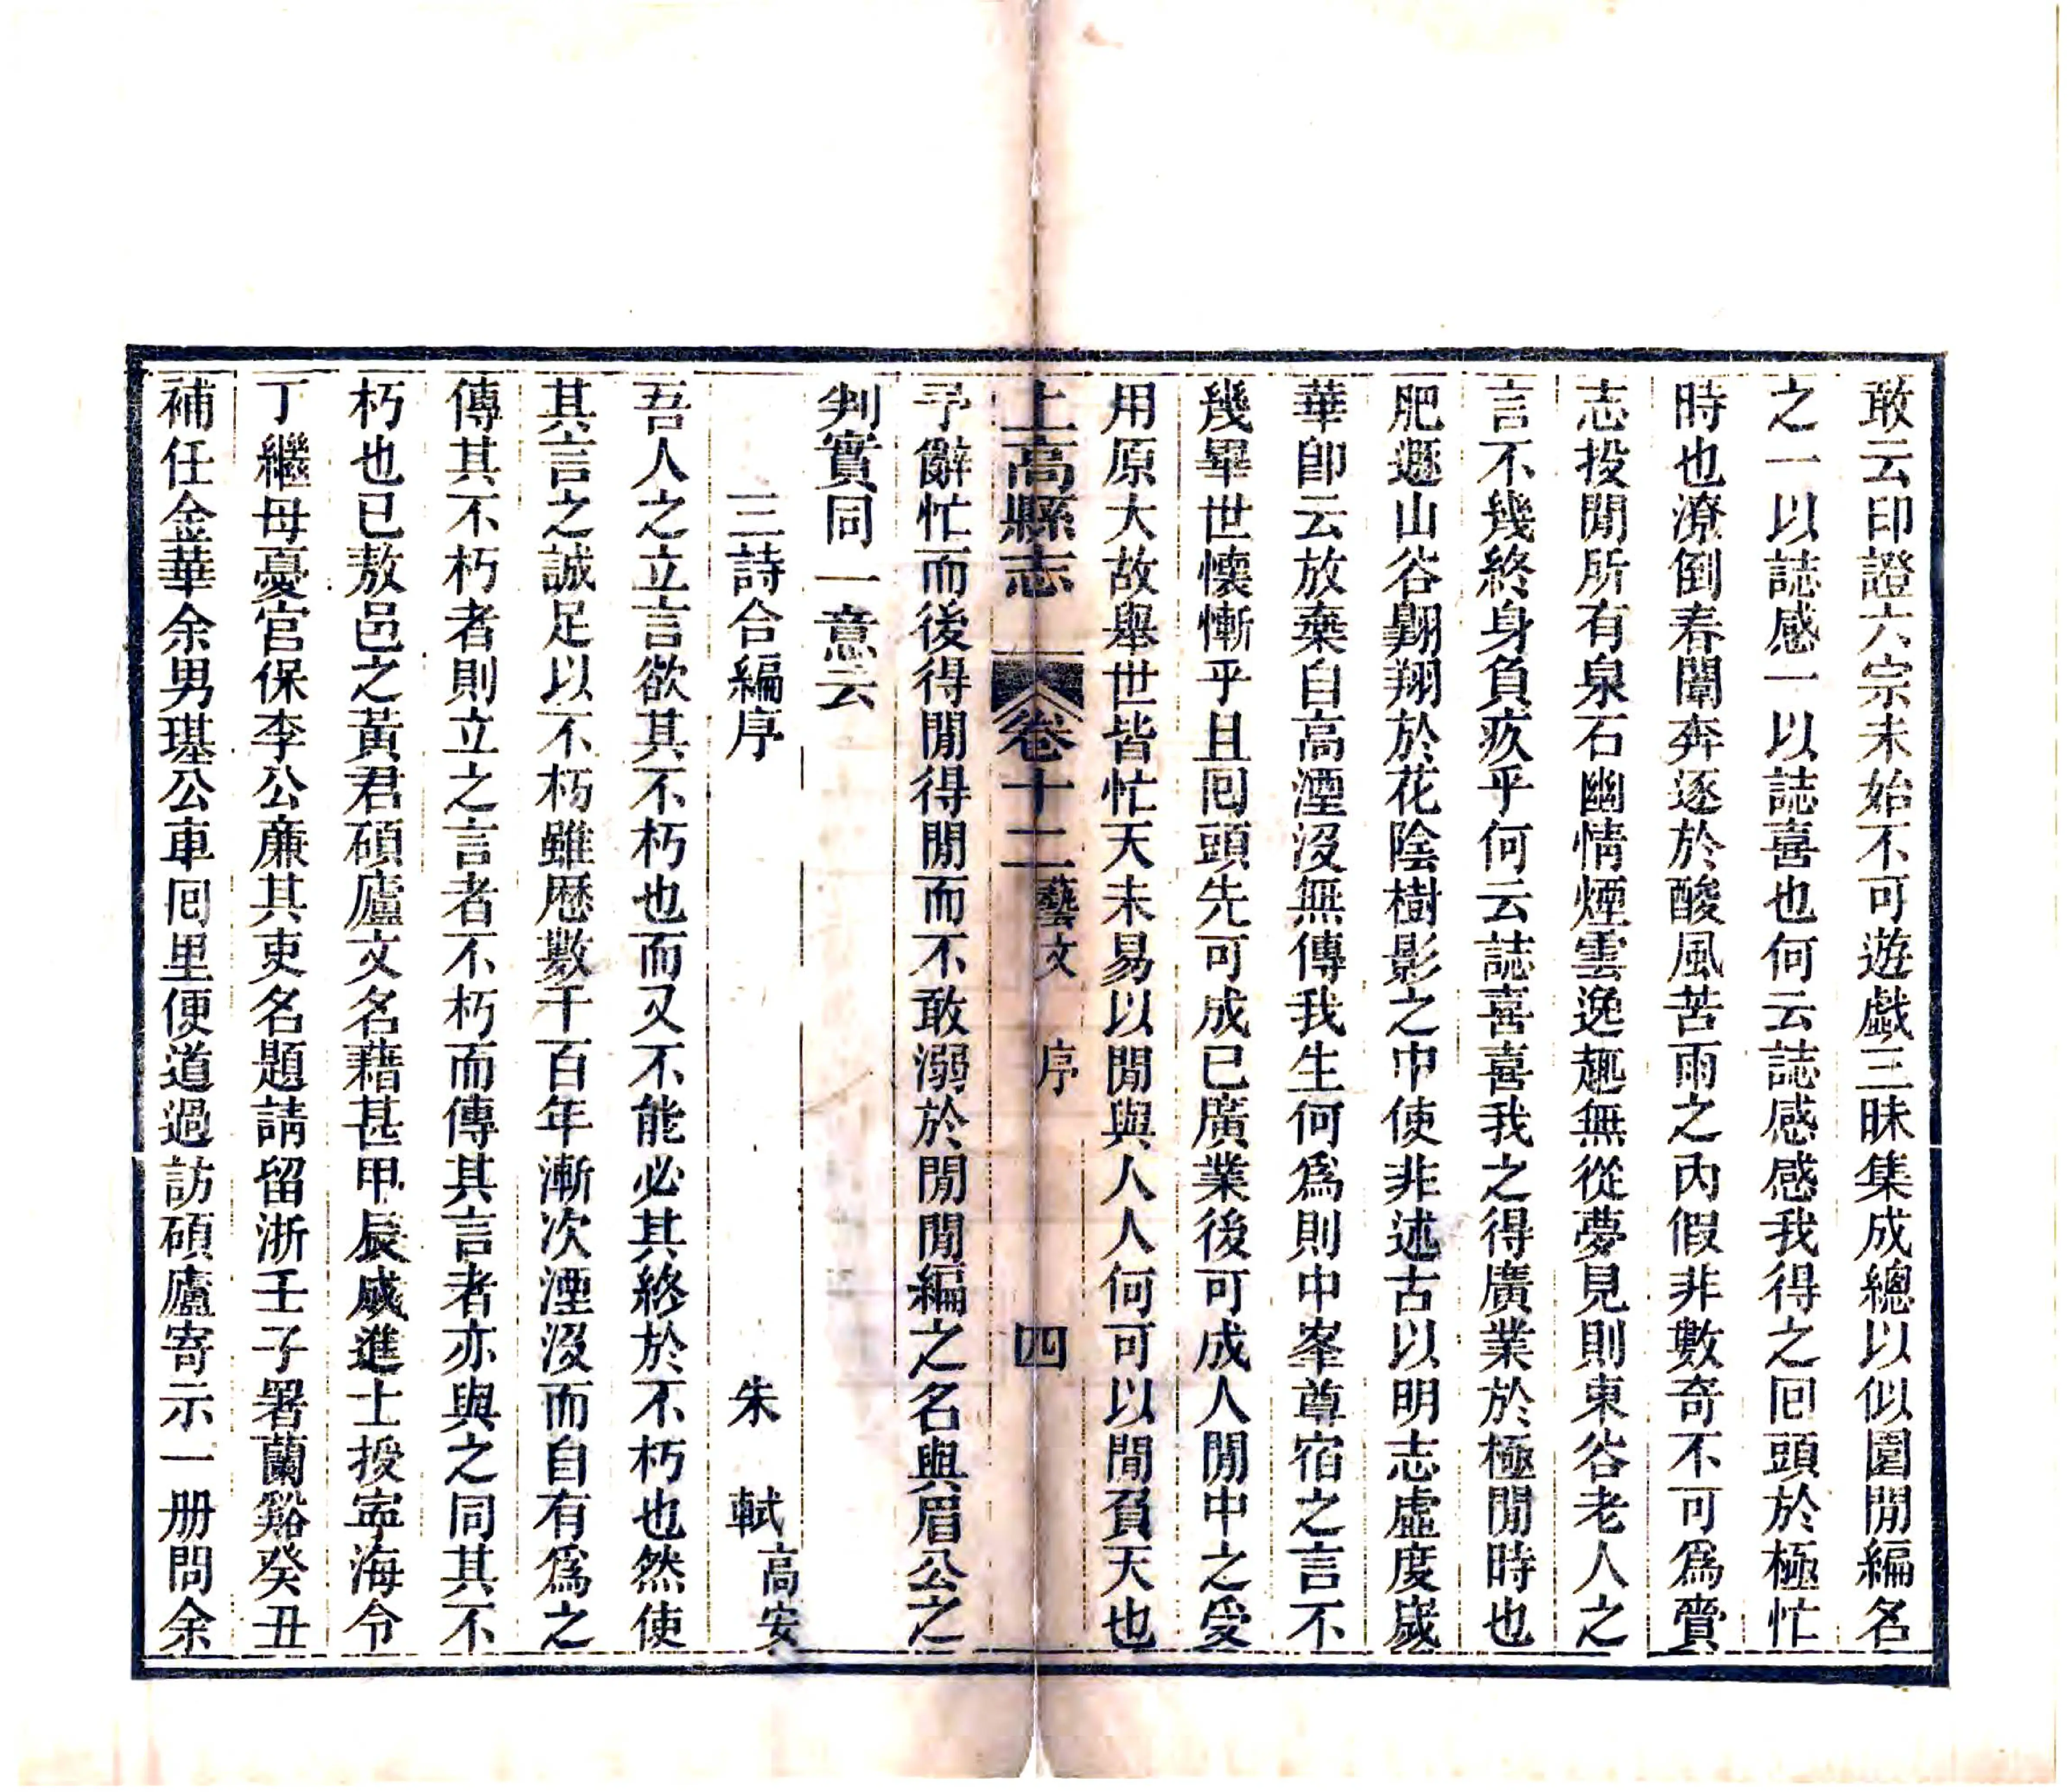 敢云印證六宗未始不可遊戲三昧集成總以似園閒編名
之一以誌感一以誌喜也何云誌感感我得之囘頭於極忙
時也潦倒春闈奔逐於酸風苦雨之內假非數奇不可爲賣
志投閒所有泉石幽情煙雲逸趣無從夢見則東谷老人之
言不幾終身負疚乎何云誌喜喜我之得廣業於極閒時也
肥遯山谷翺翔於花陰樹影之中使非述古以明志虛度歲
華卽云放棄自高湮沒無傳我生何爲則中峯尊宿之言不
幾畢世懷慚乎且囘頭先可成已廣業後可成人閒中之受
用原大故舉世皆忙天未易以閒與人人何可以閒負天也
上高縣志 卷十二 藝文 序 四
予辭忙而後得閒得閒而不敢溺於閒閒編之名與眉公之
判實同一意云
三詩合編序 朱軾 高安
吾人之立言欲其不朽也而又不能必其終於不朽也然使
其言之誠足以不朽雖歷數千百年漸次湮沒而自有爲之
傳其不朽者則立之言者不朽而傳其言者亦與之同其不
朽也已敖邑之黃君碩廬文名藉甚甲辰成進士授寍海令
丁繼母憂官保李公廉其吏名題請留浙壬子署蘭谿癸丑
補任金華余男璂公車囘里便道過訪碩廬寄示一册問余